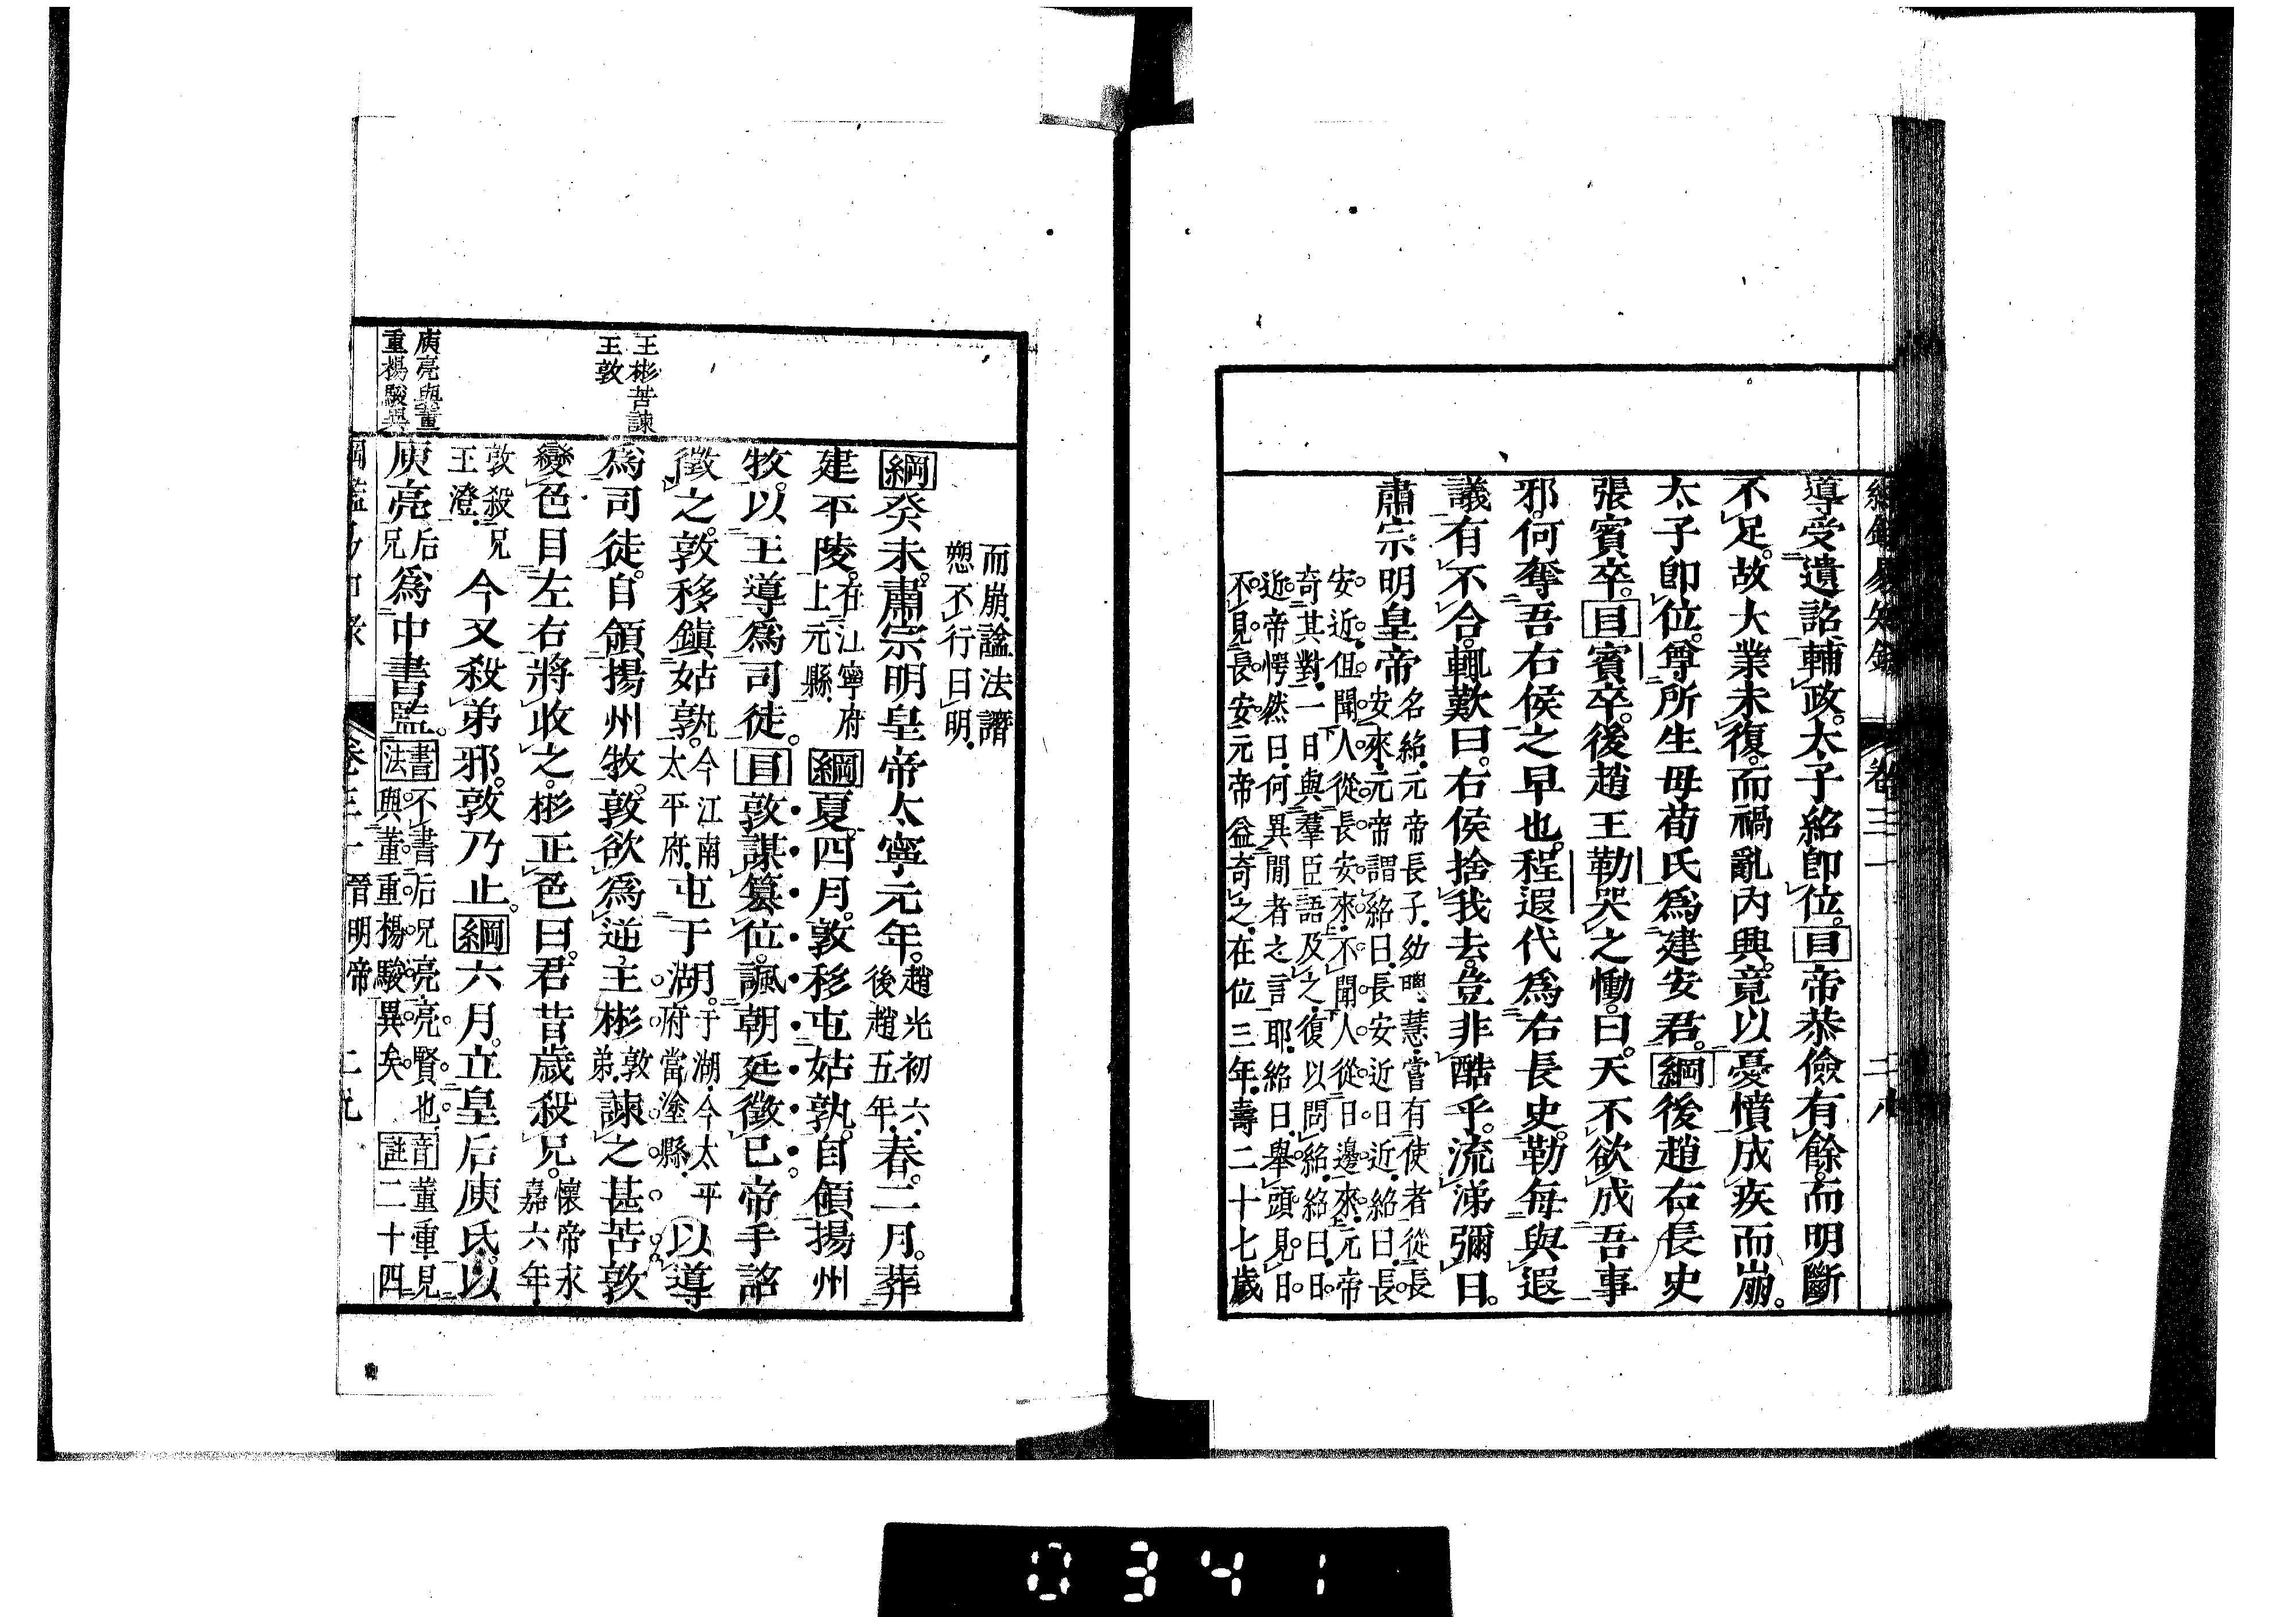 綱鑑易知錄 卷三一 二八
導受遺詔輔政。太子紹卽位。目帝恭儉有餘。而明斷
不足。故大業未復。而禍亂內興。竟以憂憤成疾而崩。
太子卽位。尊所生母荀氏爲建安君。綱後趙右長史
張賓卒。目賓卒。後趙王勒哭之慟。曰。天不欲成吾事
邪。何奪吾右侯之早也。程遐代爲右長史。勒每與遐
議有不合。輒歎曰。右侯捨我去。豈非酷乎。流涕彌日。
肅宗明皇帝
名紹。元帝長子。幼聰慧。嘗有使者從長
安來。元帝謂紹曰。長安近日近。紹曰。長
安近。但聞人從長安來。不聞人從日邊來。元帝
奇其對。一日與羣臣語及之。復以問紹。紹曰。日
近。帝愕然曰。何異閒者之言耶。紹曰。舉頭見日。
不見長安。元帝益奇之。在位三年。壽二十七歲
而崩。諡法譖
愬不行曰明。
綱癸未。肅宗明皇帝太寧元年。趙光初六。後趙五年。春。二月。葬
建平陵。在江寧府上元縣。綱夏。四月。敦移屯姑孰。自領揚州
牧。以王導爲司徒。目敦謀篡位。諷朝廷徵已。帝手詔
徵之。敦移鎮姑孰。孰。今江南太平府。屯于湖。于湖。今太平府當塗縣。以導
爲司徒。自領揚州牧。敦欲爲逆。王彬敦弟。諫之甚苦。敦
變色目左右。將收之。彬正色曰。君昔歲殺兄。懷帝永嘉六年。
敦殺兄王澄。今又殺弟邪。敦乃止。綱六月。立皇后庾氏。以
庾亮后兄爲中書監。書法不書后兄亮。亮賢也。與董重楊駿異矣。音註董重見二十四
王彬苦諫
王敦
庾亮與董
重楊駿異
綱鑑易知錄 卷三一 晉明帝 二九
0341